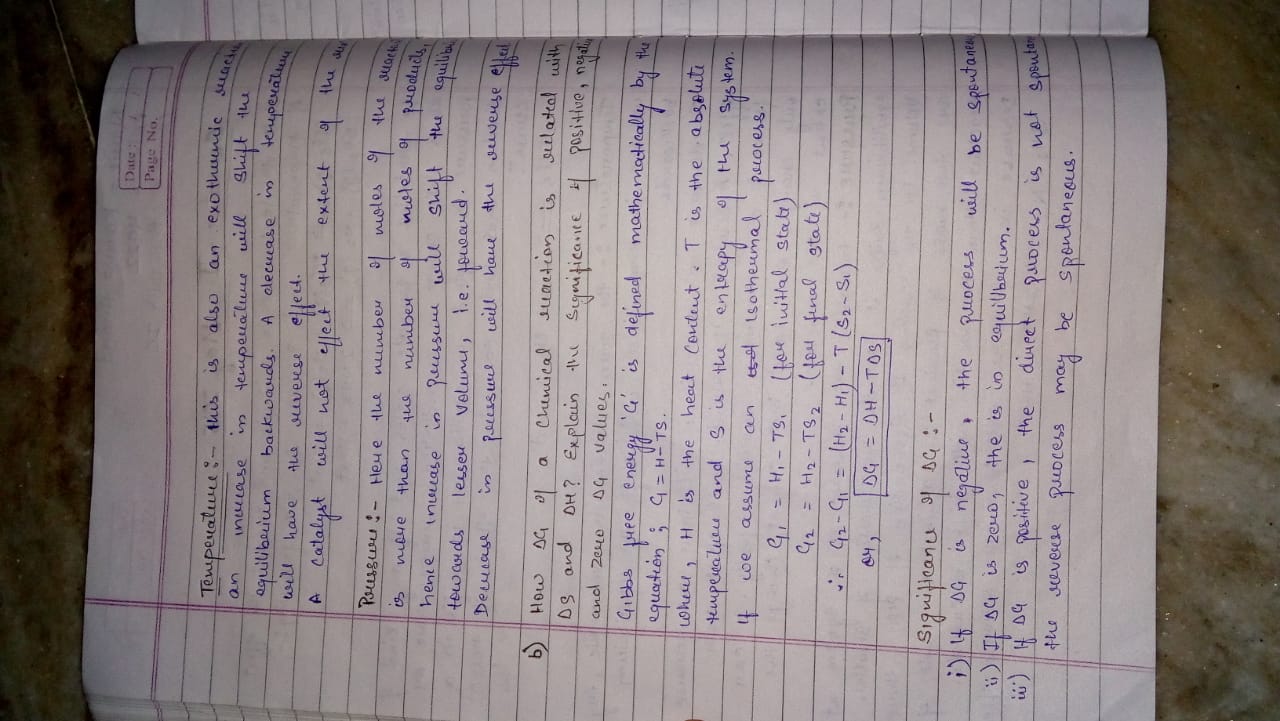 Date:
Page No.
Temperature :- this is also an exothermic
an increase in temperature will shift the
equilibrium backwards. A decrease in temperature
will have the reverse effect.
A catalyst will not effect the extent of the
Pressure :- Here the number of moles of the
is more than the number of moles of products,
hence increase in pressure will shift the
towards lesser volume, i.e. forward.
Decrease in pressure will have the reverse effect
b) How ΔG of a chemical reaction is related with
ΔS and ΔH? Explain the significance of positive,
and zero ΔG values.
Gibbs free energy 'G' is defined mathematically by the
equation ; G = H-TS.
where, H is the heat content. T is the absolute
temperature and S is the entropy of the system.
If we assume an isothermal process.
G₁ = H₁ - TS₁ (for initial state)
G₂ = H₂ - TS₂ (for final state)
∴ G₂ - G₁ = (H₂ - H₁) - T (S₂ - S₁)
or, ΔG = ΔH - TΔS
Significance of ΔG :-
i) If ΔG is negative, the process will be
ii) If ΔG is zero, the is in equilbrium.
iii) If ΔG is positive, the direct process is not
the reverse process may be spontaneous.